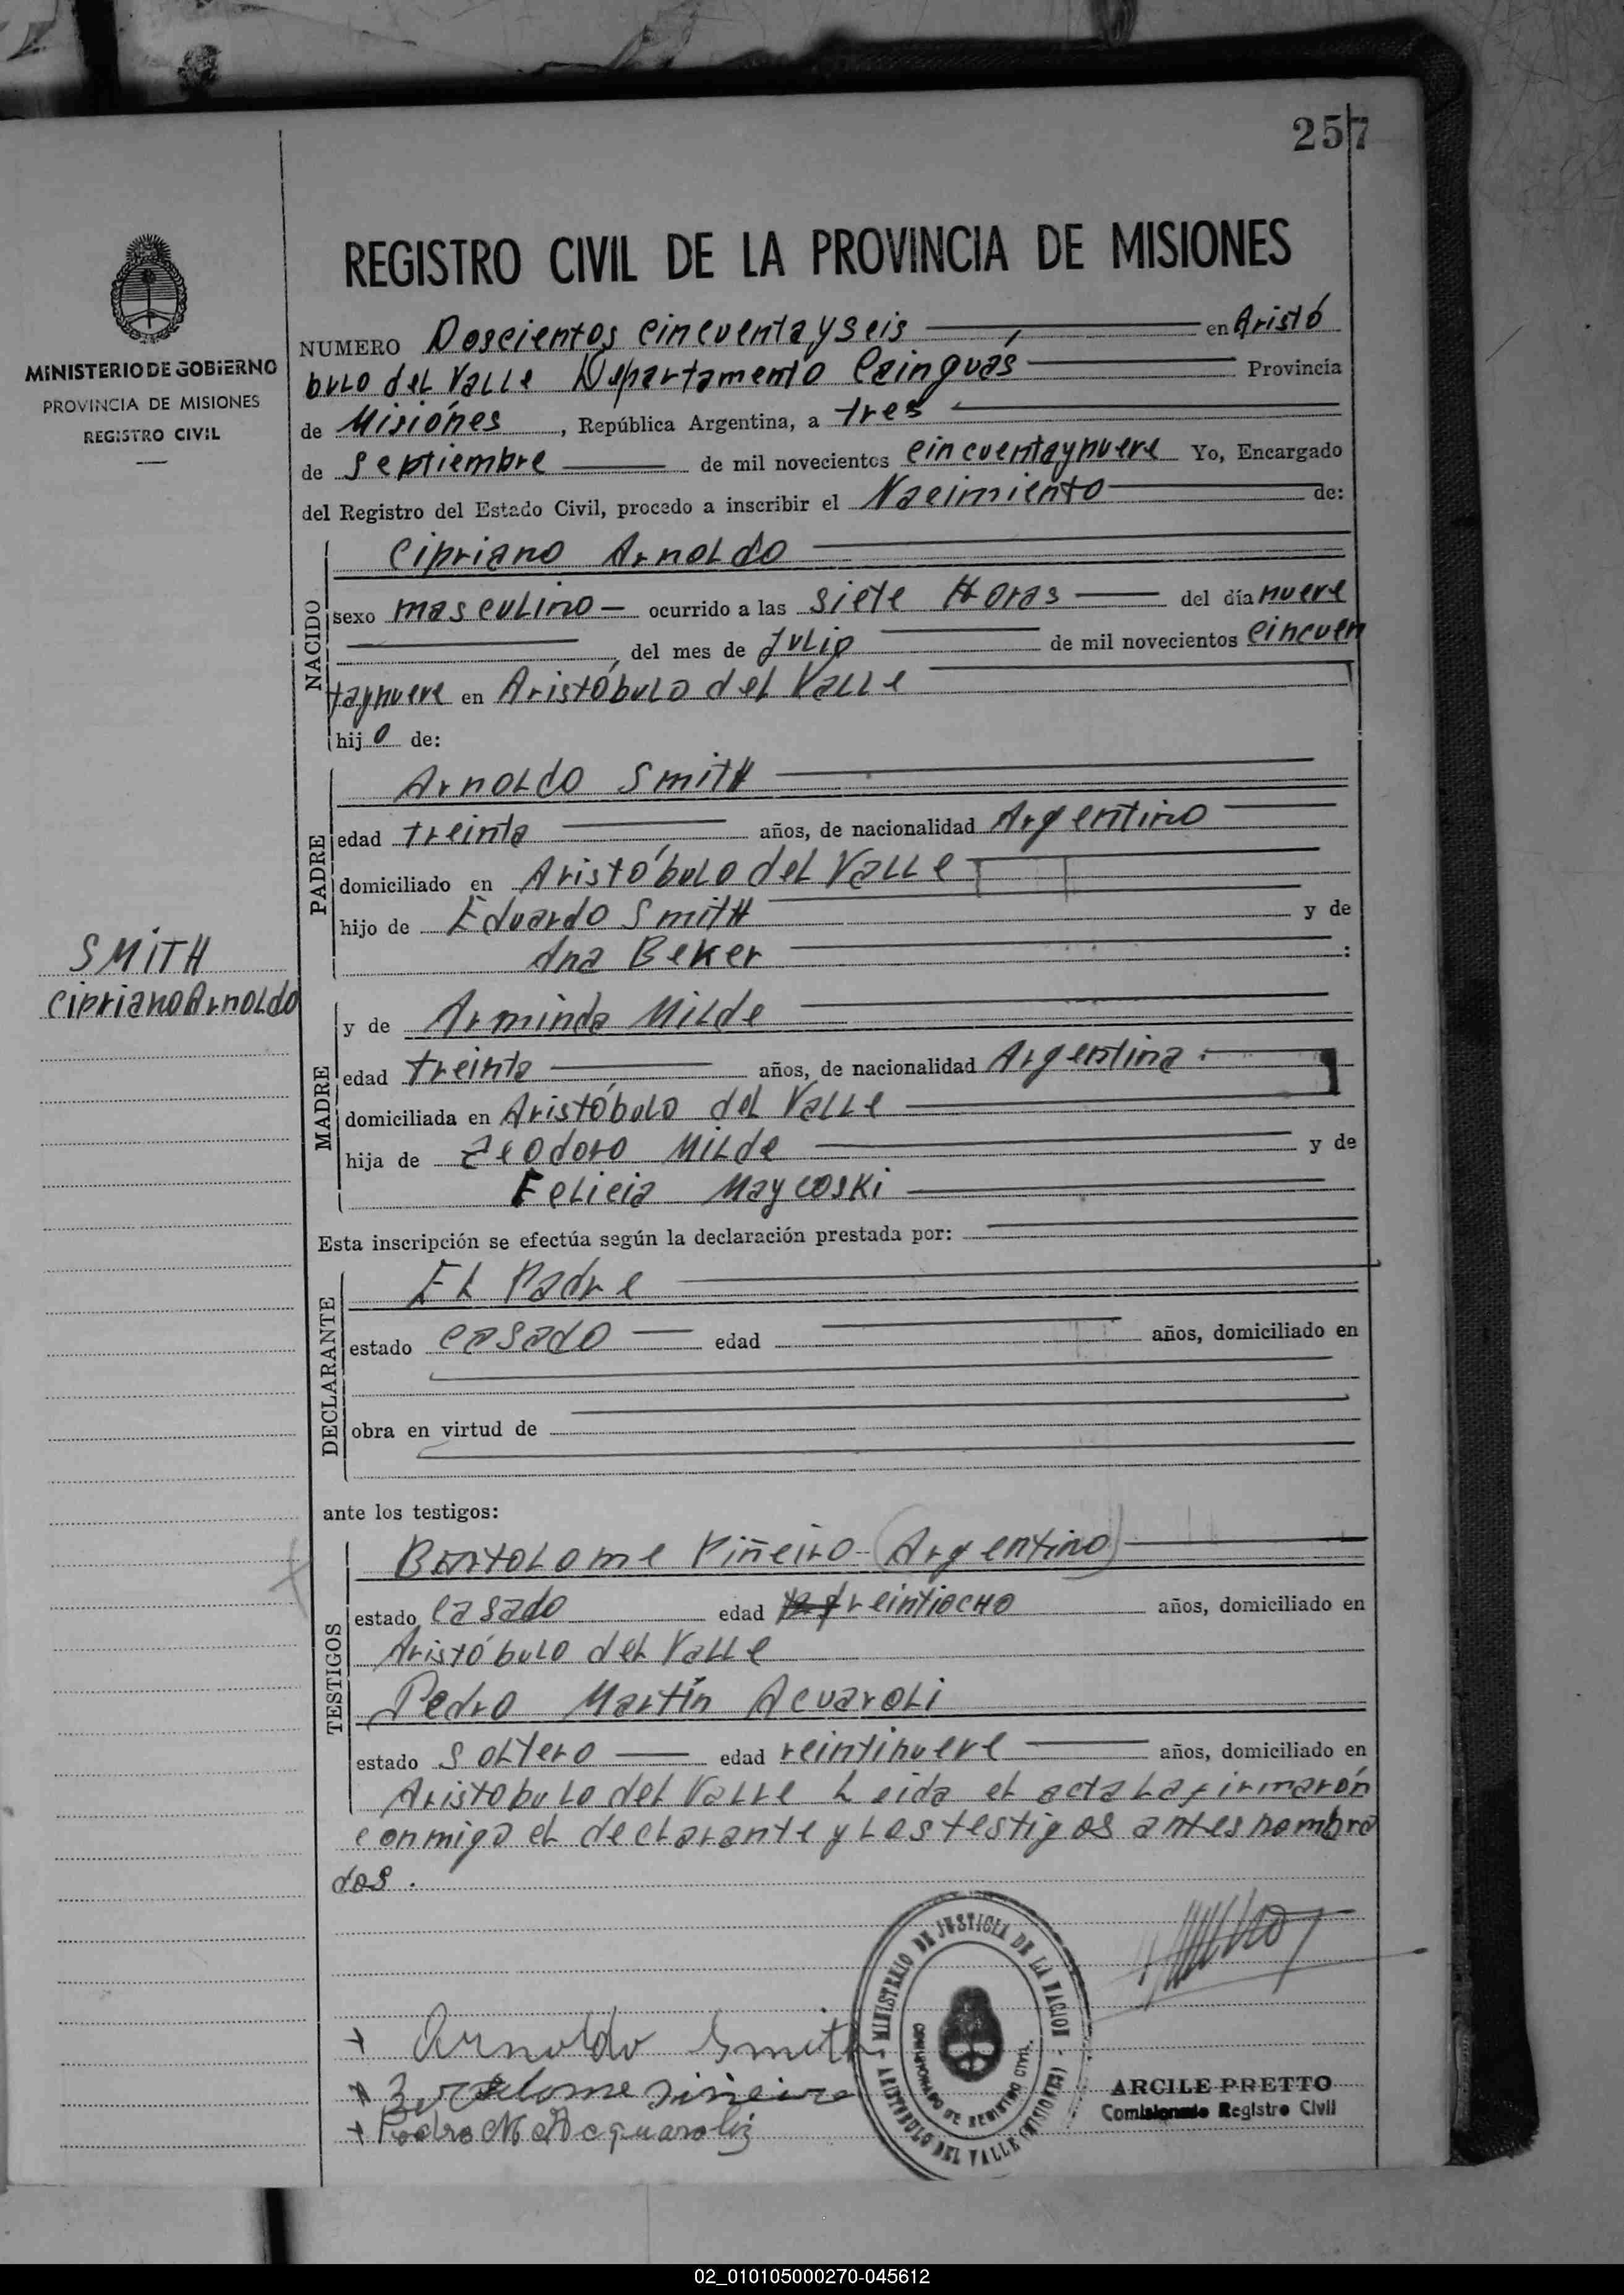 257
REGISTRO CIVIL DE LA PROVINCIA DE MISIONES
MINISTERIO DE GOBIERNO
PROVINCIA DE MISIONES
REGISTRO CIVIL
NUMERO Doscientos cincuentayseis en Aristó
bulo del Valle Departamento Cainguás Provincia
de Misiónes, República Argentina, a tres
de septiembre de mil novecientos cincuentaynueve Yo, Encargado
del Registro del Estado Civil, procedo a inscribir el Nacimiento de:
NACIDO
Cipriano Arnoldo
sexo masculino ocurrido a las siete Horas del día nueve
del mes de Julio de mil novecientos cincuen
taynueve en Aristóbulo del Valle
hij o de:
PADRE
Arnoldo Smith
edad treinta años, de nacionalidad Argentino
domiciliado en Aristóbulo del Valle
hijo de Eduardo Smith y de
Ana Beker :
SMITH
Cipriano Arnoldo
MADRE
y de Arminda Milde
edad treinta años, de nacionalidad Argentina.
domiciliada en Aristóbulo del Valle
hija de Zeodoro Milde y de
Felicia Maycoski
Esta inscripción se efectúa según la declaración prestada por:
DECLARANTE
El Padre
estado casado edad años, domiciliado en
obra en virtud de
ante los testigos:
TESTIGOS
Bartolome Piñeiro (Argentino)
estado casado edad veintiocho años, domiciliado en
Aristóbulo del Valle
Pedro Martín Acuaroli
estado soltero edad veintinueve años, domiciliado en
Aristobulo del Valle Leida el acta la firmarón
conmigo el declarante y los testigos antes nombra
dos.
MINISTERIO DE JUSTICIA DE LA NACION
COMISIONADO DE REGISTRO CIVIL.
ARISTOBULO DEL VALLE (MISIONES)
+ Arnoldo Smith
Bartolome Piñeiro
+ Pedro M Acquaroli
ARCILE PRETTO
Comisionado Registro Civil
02_010105000270-045612